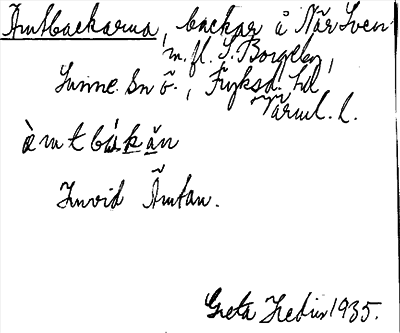 Ämtbackarna, backar å När Sven
m. fl. S. Borgeby,
Sunne sn ö., Fryksd. hd
Värml. l.
àmtbákăn
Invid Ämtan.
Greta Hedin 1935.